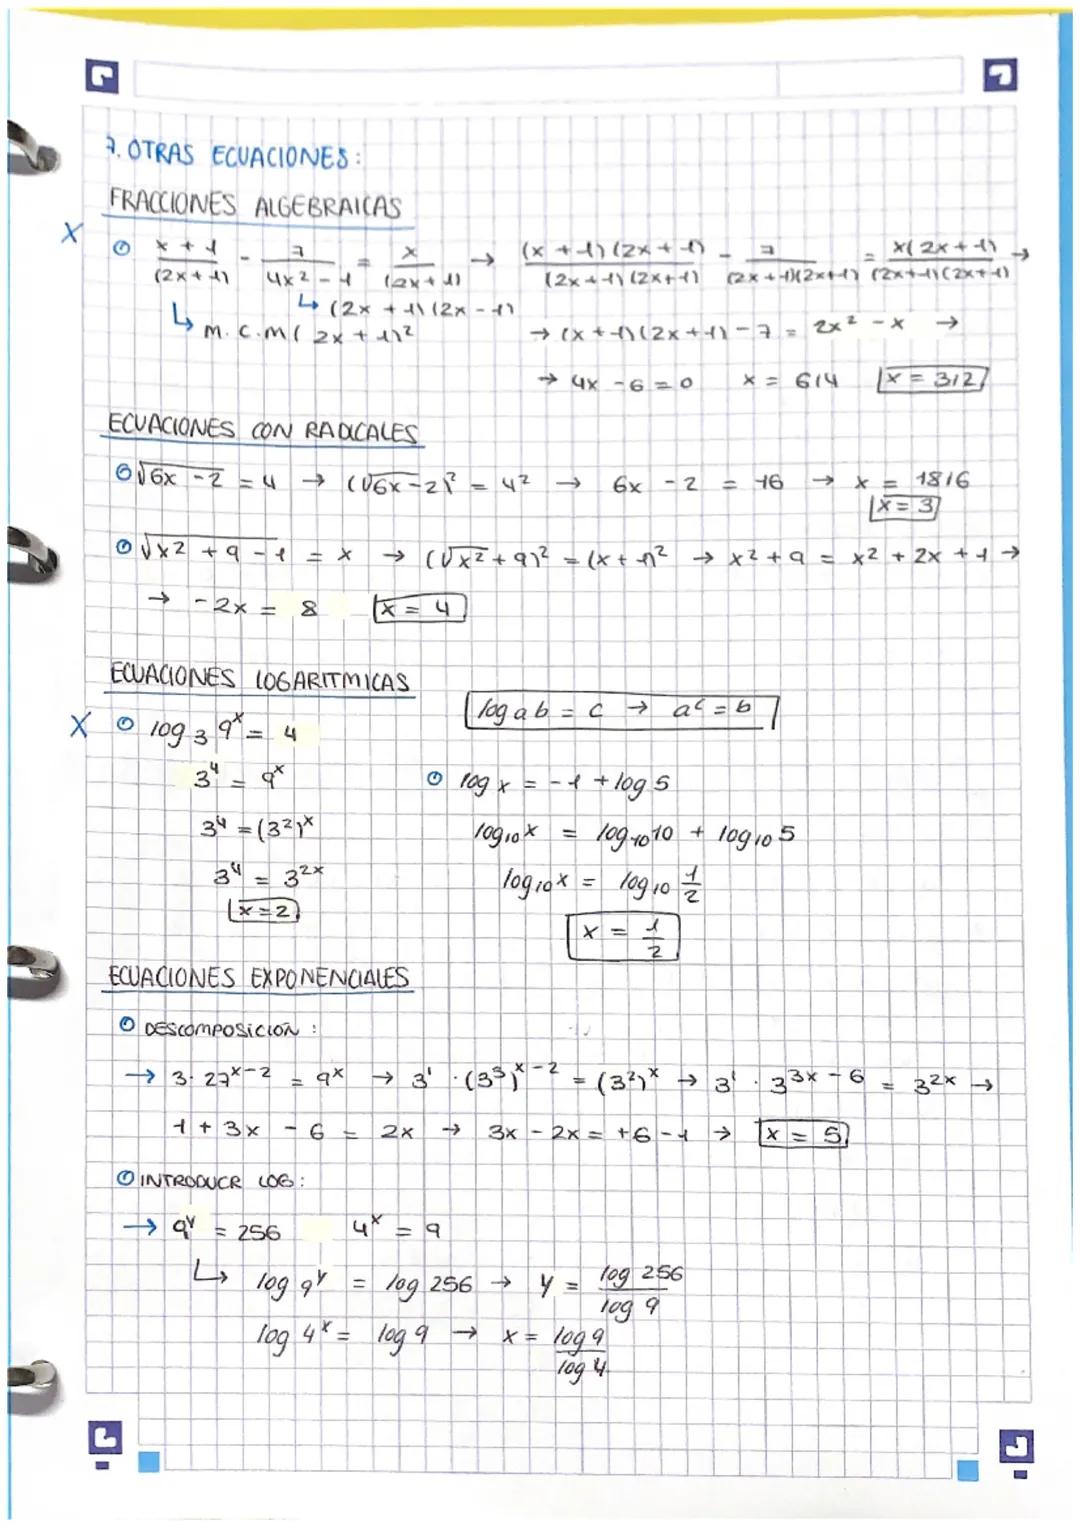 7. OTRAS ECUACIONES:
FRACCIONES ALGEBRAICAS
X x + 1/(2x + 1) - 7/4x² - 1 = x/(2x + 1) → (x + 1)(2x + 1)/(2x + 1)(2x + 1) - 7/(2x + 1)(2x + 1) = x(2x + 1)/(2x + 1)(2x + 1) →
↳ (2x + 1)(2x - 1)
↳ m.c.m( 2x + 1)² → (x + 1)(2x + 1) - 7 = 2x² - x →
→ 4x - 6 = 0 x = 6/4 x = 3/2
ECUACIONES CON RADICALES
√6x - 2 = 4 → (√6x - 2)² = 4² → 6x - 2 = 16 → x = 18/6
x = 3
√x² + 9 - 1 = x → (√x² + 9)² = (x + 1)² → x² + 9 = x² + 2x + 1 →
→ - 2x = 8 x = 4
ECUACIONES LOGARITMICAS
log a b = c → aᶜ = b
X log ₃ 9ˣ = 4
3⁴ = 9ˣ
log x = - 1 + log 5
3⁴ = (3²)ˣ
log₁₀ x = log₁₀ 10 + log₁₀ 5
3⁴ = 3²ˣ
log₁₀ x = log₁₀ 1/2
x = 2
x = 1/2
ECUACIONES EXPONENCIALES
DESCOMPOSICIÓN :
→ 3 · 27ˣ⁻² = 9ˣ → 3¹ · (3³)ˣ⁻² = (3²)ˣ → 3¹ · 3³ˣ⁻⁶ = 3²ˣ →
1 + 3x - 6 = 2x → 3x - 2x = +6 - 1 → x = 5
INTRODUCR LOG:
→ 9ʸ = 256 4ˣ = 9
↳ log 9ʸ = log 256 → y = log 256/log 9
log 4ˣ = log 9 → x = log 9/log 4